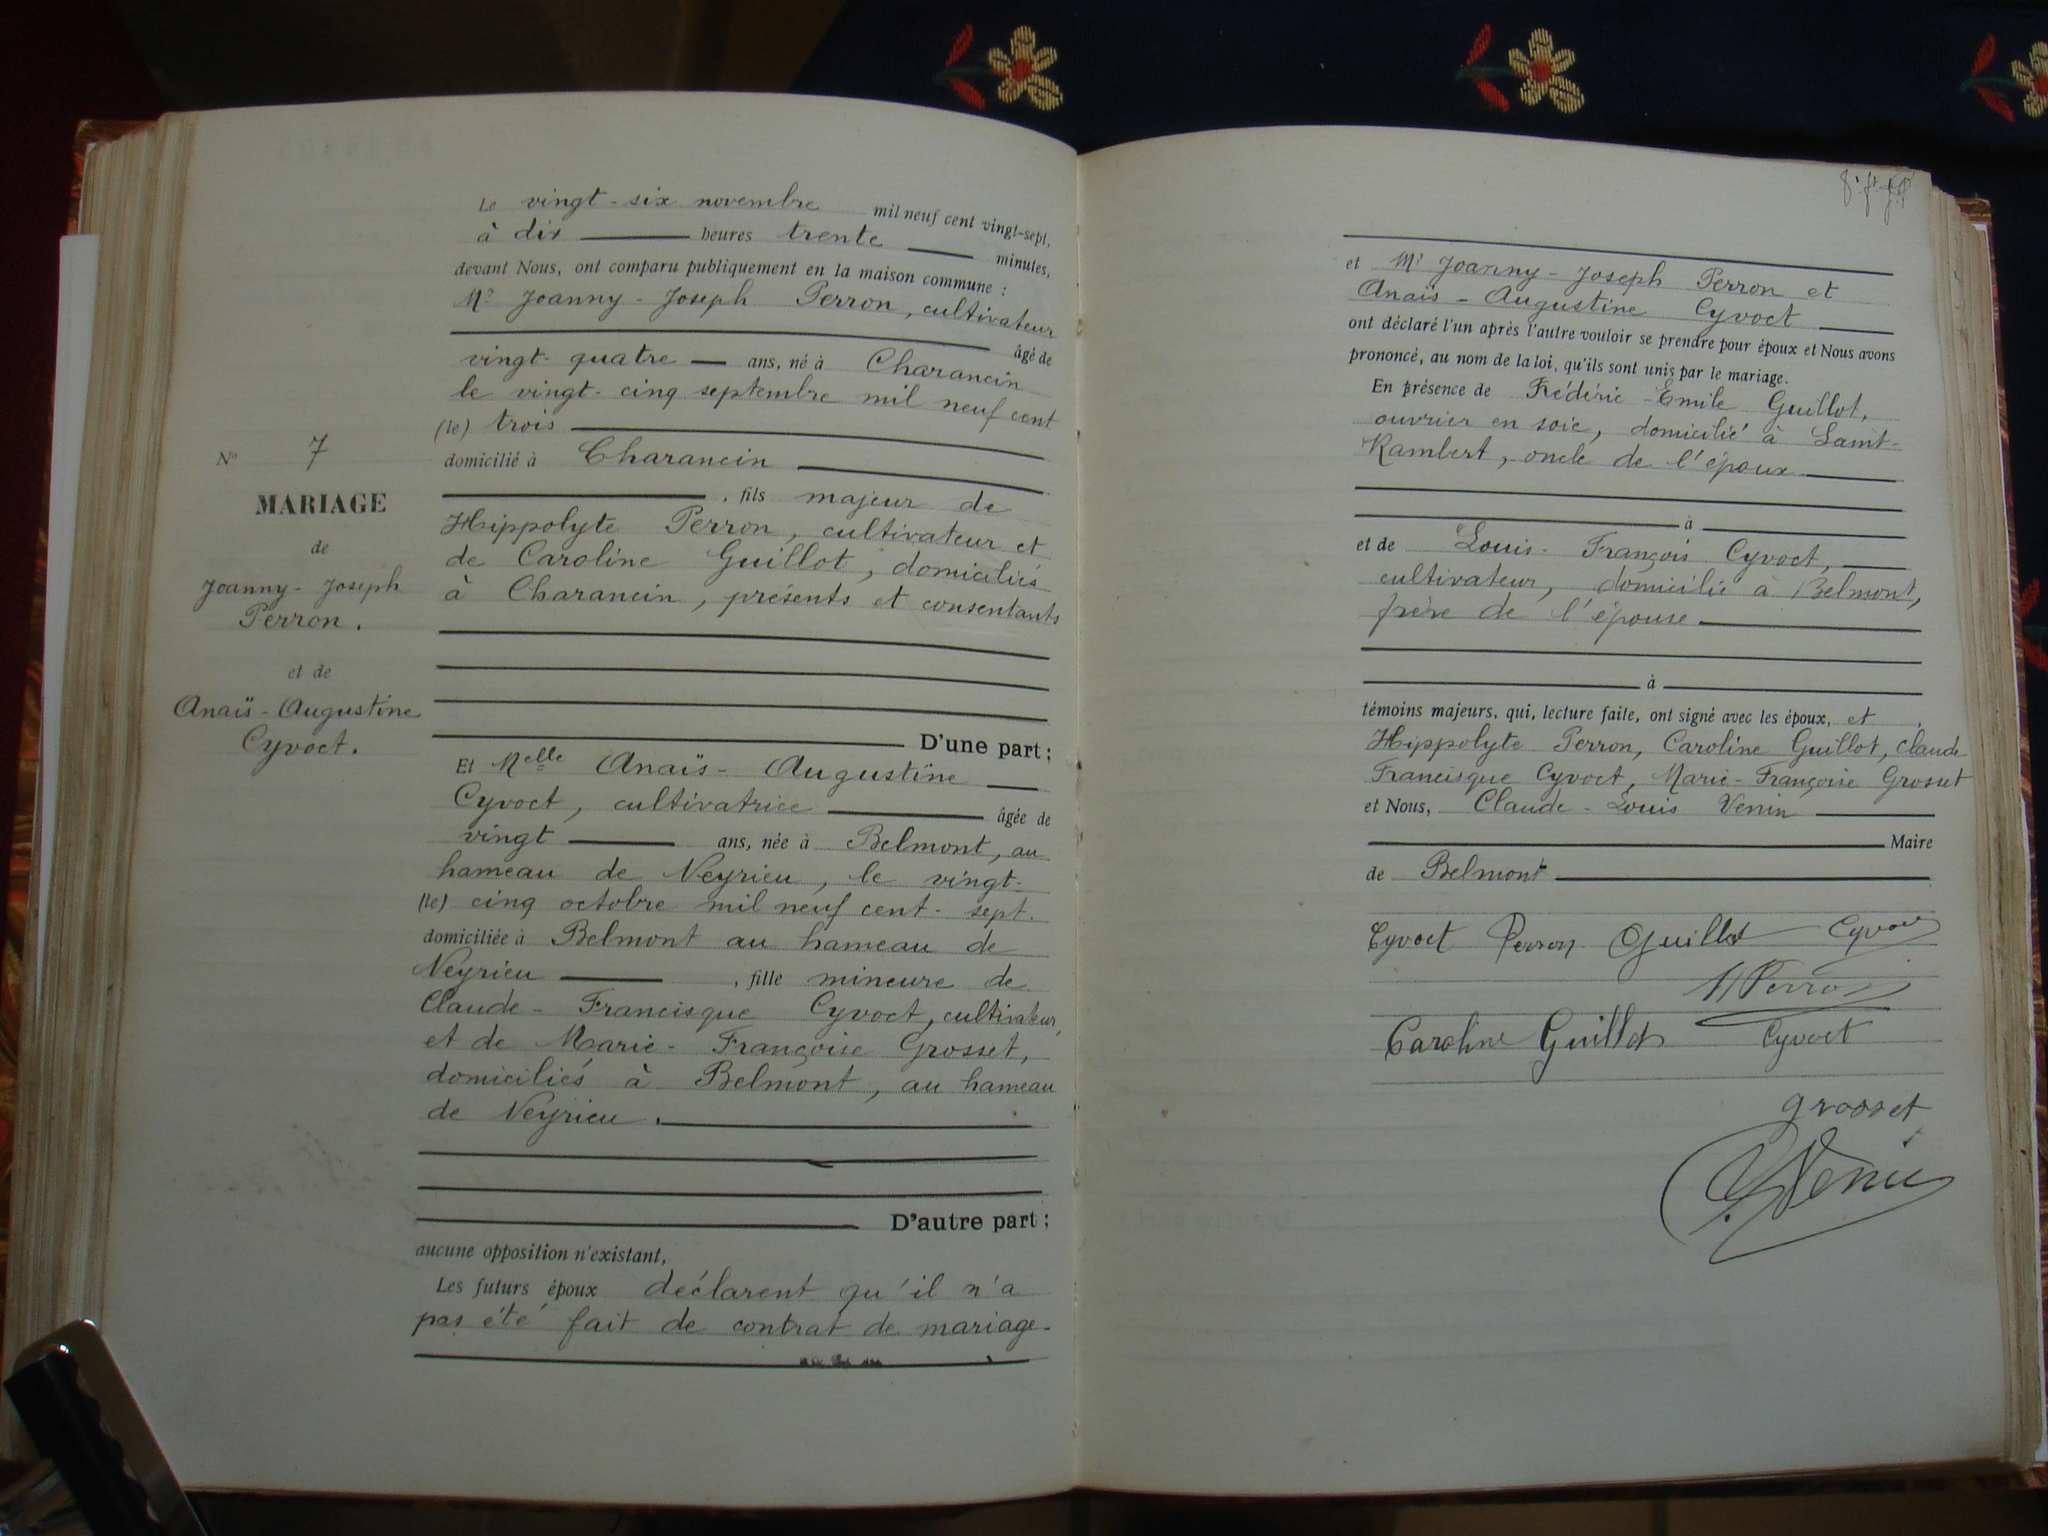 Le vingt-six novembre mil neuf cent vingt-sept,
à dix heures trente minutes,
devant Nous, ont comparu publiquement en la maison commune :
Mr Joanny-Joseph Perron, cultivateur
âgé de
vingt-quatre ans, né à Charancin
le vingt-cinq septembre mil neuf cent
(le) trois
domicilié à Charancin
, fils majeur de
Hippolyte Perron, cultivateur et
de Caroline Guillot, domiciliés
à Charancin, présents et consentants
D'une part ;
Et Melle Anaïs-Augustine
Cyvoct, cultivatrice âgée de
vingt ans, née à Belmont, au
hameau de Neyrieu, le vingt-
(le) cinq octobre mil neuf cent-sept.
domiciliée à Belmont au hameau de
Neyrieu , fille mineure de
Claude-Francisque Cyvoct, cultivateur,
et de Marie-Françoise Grosset,
domiciliés à Belmont, au hameau
de Neyrieu.
D'autre part ;
aucune opposition n'existant,
Les futurs époux déclarent qu'il n'a
pas été fait de contrat de mariage.
No 7
MARIAGE
de
Joanny-Joseph
Perron.
et de
Anaïs-Augustine
Cyvoct.
et Mr Joanny-Joseph Perron et
Anaïs-Augustine Cyvoct
ont déclaré l'un après l'autre vouloir se prendre pour époux et Nous avons
prononcé, au nom de la loi, qu'ils sont unis par le mariage.
En présence de Frédéric-Emile Guillot,
ouvrier en soie, domicilié à Saint-
Rambert, oncle de l'époux
à
et de Louis-François Cyvoct,
cultivateur, domicilié à Belmont,
frère de l'épouse
à
témoins majeurs, qui, lecture faite, ont signé avec les époux, et
Hippolyte Perron, Caroline Guillot, Claude
Francisque Cyvoct, Marie-Françoise Grosset
et Nous, Claude-Louis Venin
Maire
de Belmont
Cyvoct Perron Guillot Cyvoct
H Perron
Caroline Guillot Cyvoct
grosset
Venin